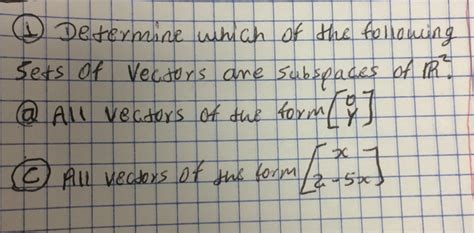 ① Determine which of the following
Sets of Vectors are subspaces of ℝ².
ⓐ All vectors of the form [0 Y]
ⓒ All vectors of the form [x 2-5x]